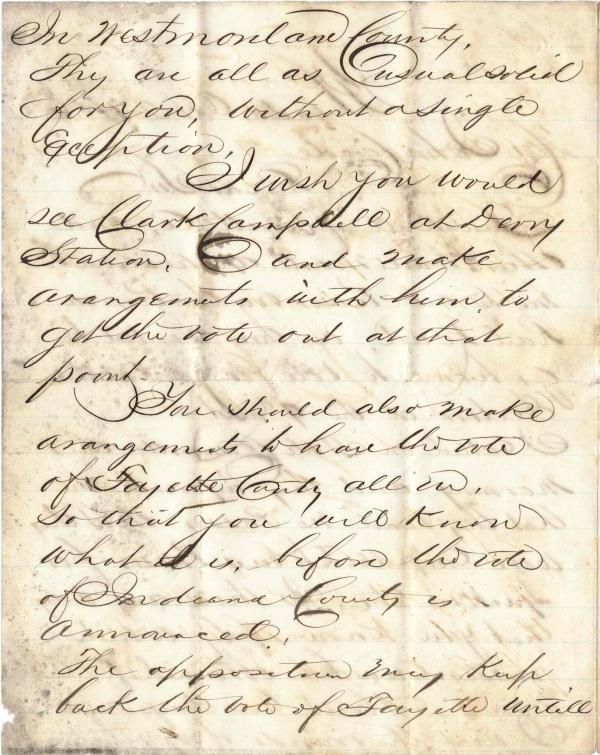 In Westmoreland County,
Thy are all as Usual solid
for you, without a single
Exception,
I wish you would
see Clark Campbell at Derry
Station, and make
arangements with him to
get the vote out at that
point.
You should also make
arangements to have the vote
of Fayette County all in,
so that you will Know
what it is, before the vote
of Indiana County is
announced.
The opposition may Keep
back the vote of Fayette untill